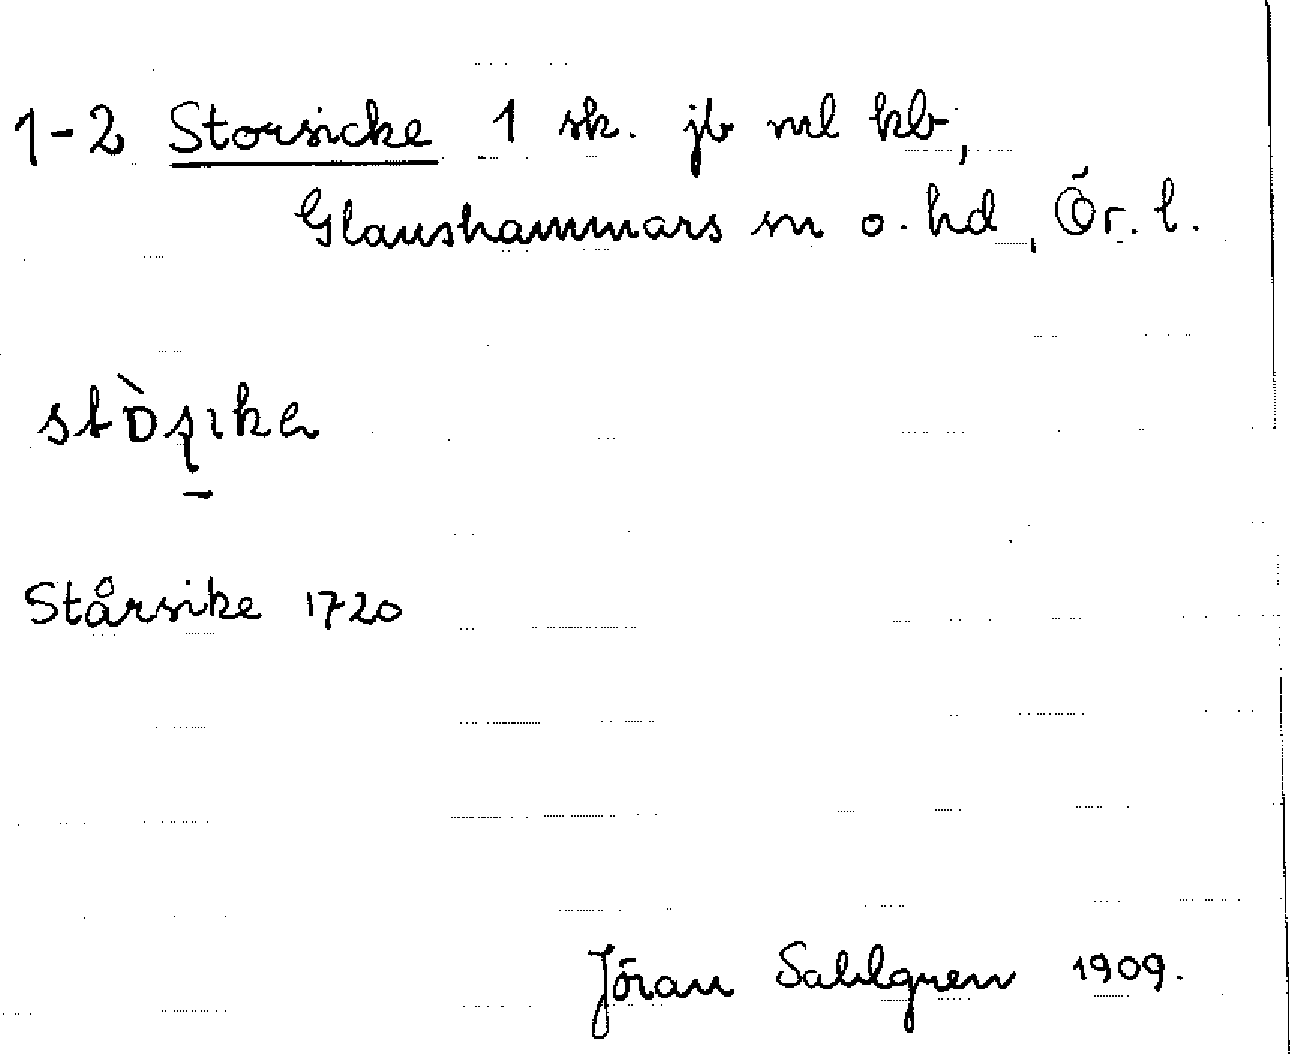 1-2 Storsicke 1 sk. jb ml kb,
Glanshammars sn o. hd, Ör. l.
Stårsike 1720
Jöran Sahlgren 1909.